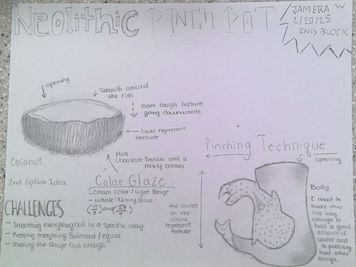 Neolithic PINCH POT
JAMERA W
2/20/25
2ND BLOCK
opening
Smooth around
the rim
more rough texture
going downwards
lines represent
texture
Mix
Chocolate Brown and a
milky cream
Coconut
2nd Option Idea
Color Glaze
Cream color / Light Beige
whale: Navy Blue
CHALLENGES
- Smoothing everything out in a specific way
- Keeping everything Balanced / equal
- Making the Shape tall enough
Pinching Technique
opening
the circles on
the whale
represent
texture
Body
I want to
make this
cup long
enough to
hold a good
amount of
water and
to possibly
hold other
things.